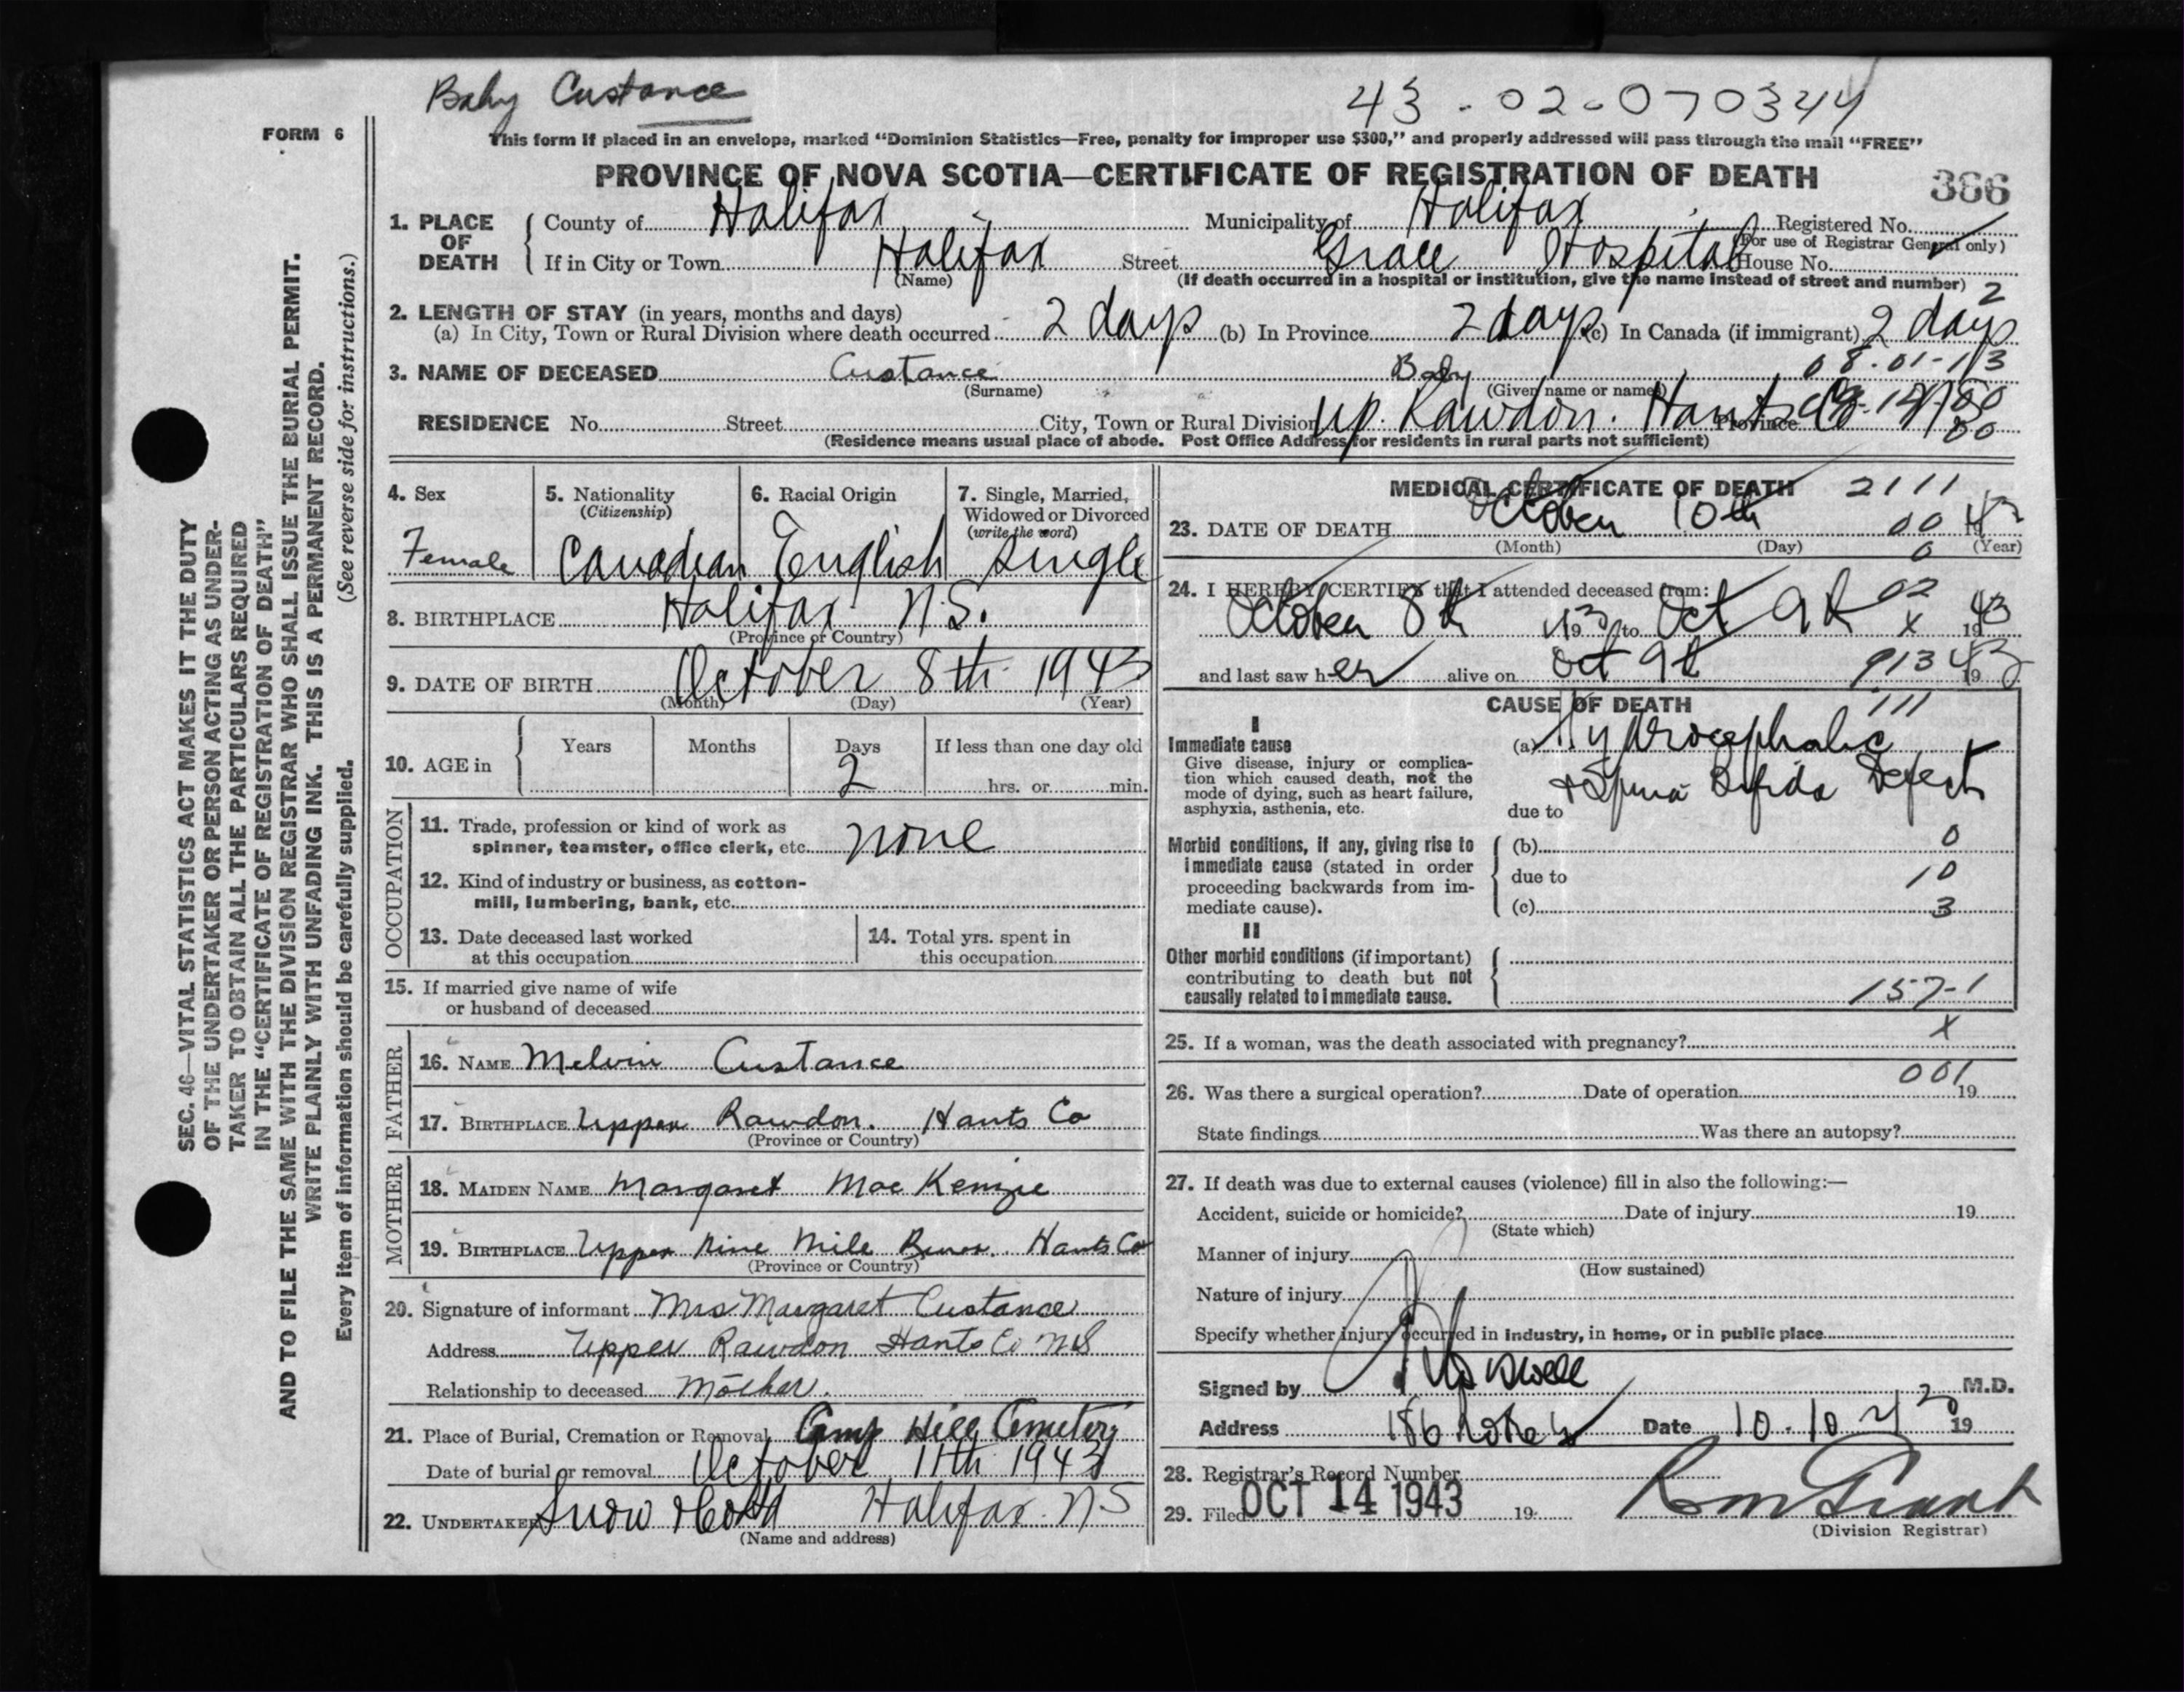 Baby Custance
43-02-070344
FORM 6
This form if placed in an envelope, marked "Dominion Statistics—Free, penalty for improper use $300," and properly addressed will pass through the mail "FREE"
PROVINCE OF NOVA SCOTIA—CERTIFICATE OF REGISTRATION OF DEATH
386
1. PLACE OF DEATH
County of Halifax Municipality of Halifax Registered No.
(For use of Registrar General only)
If in City or Town Halifax Street Grace Hospital House No.
(Name) (If death occurred in a hospital or institution, give the name instead of street and number) 2
2. LENGTH OF STAY (in years, months and days)
(a) In City, Town or Rural Division where death occurred 2 days (b) In Province 2 days (c) In Canada (if immigrant) 2 days
3. NAME OF DECEASED Custance Baby 08-01-13
(Surname) (Given name or names)
RESIDENCE No. Street City, Town or Rural Division Up. Rawdon. Hants Co. Province
(Residence means usual place of abode. Post Office Address for residents in rural parts not sufficient)
4. Sex
Female
5. Nationality
(Citizenship)
Canadian
6. Racial Origin
English
7. Single, Married, Widowed or Divorced
(write the word)
single
8. BIRTHPLACE Halifax N.S.
(Province or Country)
9. DATE OF BIRTH October 8th 1943
(Month) (Day) (Year)
10. AGE in
Years Months Days If less than one day old
2 hrs. or min.
OCCUPATION
11. Trade, profession or kind of work as
spinner, teamster, office clerk, etc. none
12. Kind of industry or business, as cotton-
mill, lumbering, bank, etc.
13. Date deceased last worked
at this occupation
14. Total yrs. spent in
this occupation
15. If married give name of wife
or husband of deceased
FATHER
16. NAME Melvin Custance
17. BIRTHPLACE Upper Rawdon. Hants Co
(Province or Country)
MOTHER
18. MAIDEN NAME Margaret MacKenzie
19. BIRTHPLACE Upper Nine Mile River. Hants Co
(Province or Country)
20. Signature of informant Mrs Margaret Custance
Address Upper Rawdon Hants Co NS
Relationship to deceased Mother.
21. Place of Burial, Cremation or Removal Camp Hill Cemetery
Date of burial or removal October 11th 1943
22. UNDERTAKER Snow Halifax. NS
(Name and address)
MEDICAL CERTIFICATE OF DEATH 2111
23. DATE OF DEATH October 10th 00 1943
(Month) (Day) 0 (Year)
24. I HEREBY CERTIFY that I attended deceased from: 02
October 8th 1943 to Oct 9th x 1943
and last saw her alive on Oct 9th 913 1943
CAUSE OF DEATH 111
I
Immediate cause
Give disease, injury or complica-
tion which caused death, not the
mode of dying, such as heart failure,
asphyxia, asthenia, etc.
(a) Hydrocephalic
+ Spina Bifida Defect
due to
Morbid conditions, if any, giving rise to
immediate cause (stated in order
proceeding backwards from im-
mediate cause).
(b) 0
due to 10
(c) 3
II
Other morbid conditions (if important)
contributing to death but not
causally related to immediate cause.
157-1
25. If a woman, was the death associated with pregnancy? x
26. Was there a surgical operation? Date of operation 001 19
State findings Was there an autopsy?
27. If death was due to external causes (violence) fill in also the following:—
Accident, suicide or homicide? Date of injury 19
(State which)
Manner of injury
(How sustained)
Nature of injury
Specify whether injury occurred in industry, in home, or in public place
Signed by M.D.
Address 186 Date 10.10.43 19
28. Registrar's Record Number
29. Filed OCT 14 1943 19
(Division Registrar)
SEC. 46—VITAL STATISTICS ACT MAKES IT THE DUTY
OF THE UNDERTAKER OR PERSON ACTING AS UNDER-
TAKER TO OBTAIN ALL THE PARTICULARS REQUIRED
IN THE "CERTIFICATE OF REGISTRATION OF DEATH"
AND TO FILE THE SAME WITH THE DIVISION REGISTRAR WHO SHALL ISSUE THE BURIAL PERMIT.
WRITE PLAINLY WITH UNFADING INK. THIS IS A PERMANENT RECORD.
Every item of information should be carefully supplied. (See reverse side for instructions.)